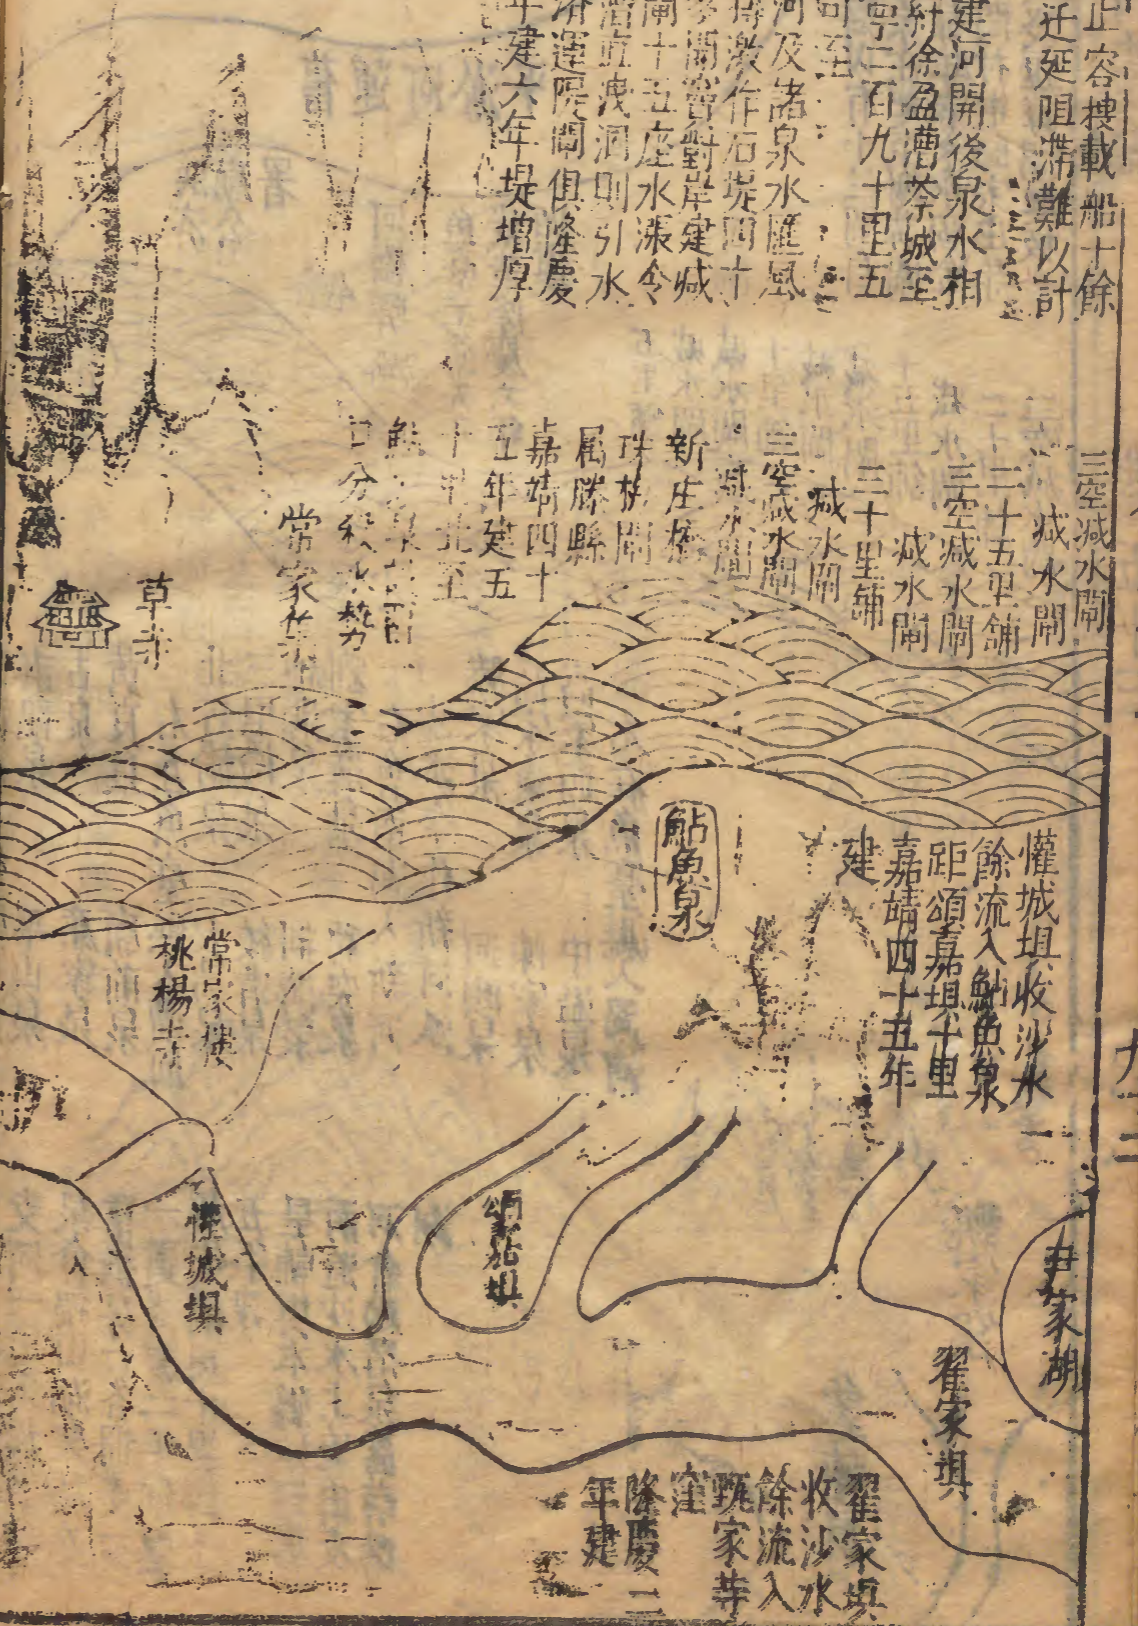 止容捜載船十餘
迁延阻滯難以計
建河開後泉水相
紆徐盈漕茶城至
寧二百九十里五
可至
河及諸泉水匯風
搏激作石堤四十
開嘗對岸建减
閘十五座水漲令
漕直洩洞則引水
濟運隄閘俱隆慶
年建六年堤增厚
三空减水閘
减水閘
二十五里舖
三空减水閘
减水閘
三十里舖
减水閘
三空减水閘
减水閘
新庄橋
珠梅閘
属滕縣
嘉靖四十
五年建五
十里北至
口分殺水勢
常家
草寺
鮎魚泉
懽城埧收沙水
餘流入鮎魚泉
距頌嘉埧十里
嘉靖四十五年
建
常家樓
桃楊寺
懽城埧
頌嘉埧
尹家湖
翟家埧
翟家埧
收沙水
餘流入
甄家
窪
隆慶二
年建